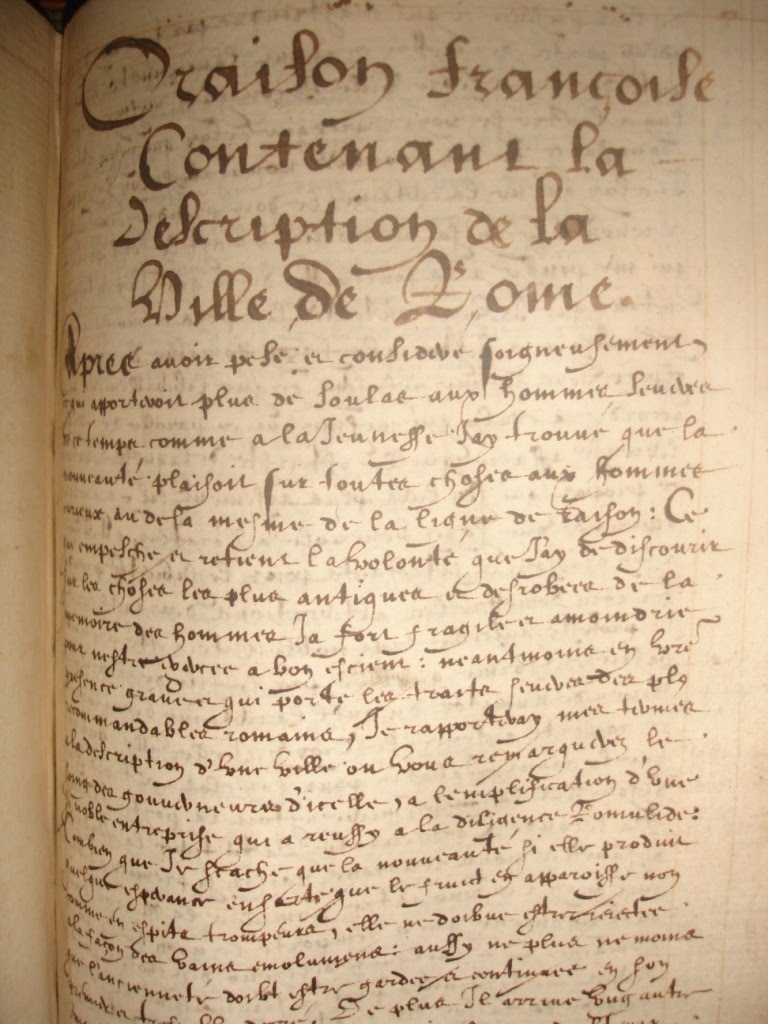 Oraison françoise
Contenant la
description de la
Ville de Rome.
Apres avoir pesé et consideré soigneusement
apporteroit plus de soulas aux hommes
temps comme a la Jeunesse J'ay trouvé que la
nouveauté plaisoit sur toutes choses aux hommes
au dela mesme de la ligne de raison: Ce
empesche et retient la volonté que J'ay de discourir
les choses les plus antiques et desrobees de la
memoire des hommes Ja fort fragile et amoindrie
a bon escient: neantmoins en vre
presence grave et qui porte les traits des plus
recommandables romains, Je rapporteray mes
a la description d'une ville ou vous remarquerez le
des gouverneurs d'icelle, a l'emplification d'une
noble entreprise qui a reussy a la diligence Romulide:
Combien que Je scache que la nouveauté, si elle produit
quelque esperance en sorte que le fruict en apparoisse non
comme en espits trompeurs, elle ne doibve estre
a la façon des vains emolumens: aussy ne plus ne moins
que l'ancienneté doibt estre gardee et continuee en son
De plus Il arrive ung autre